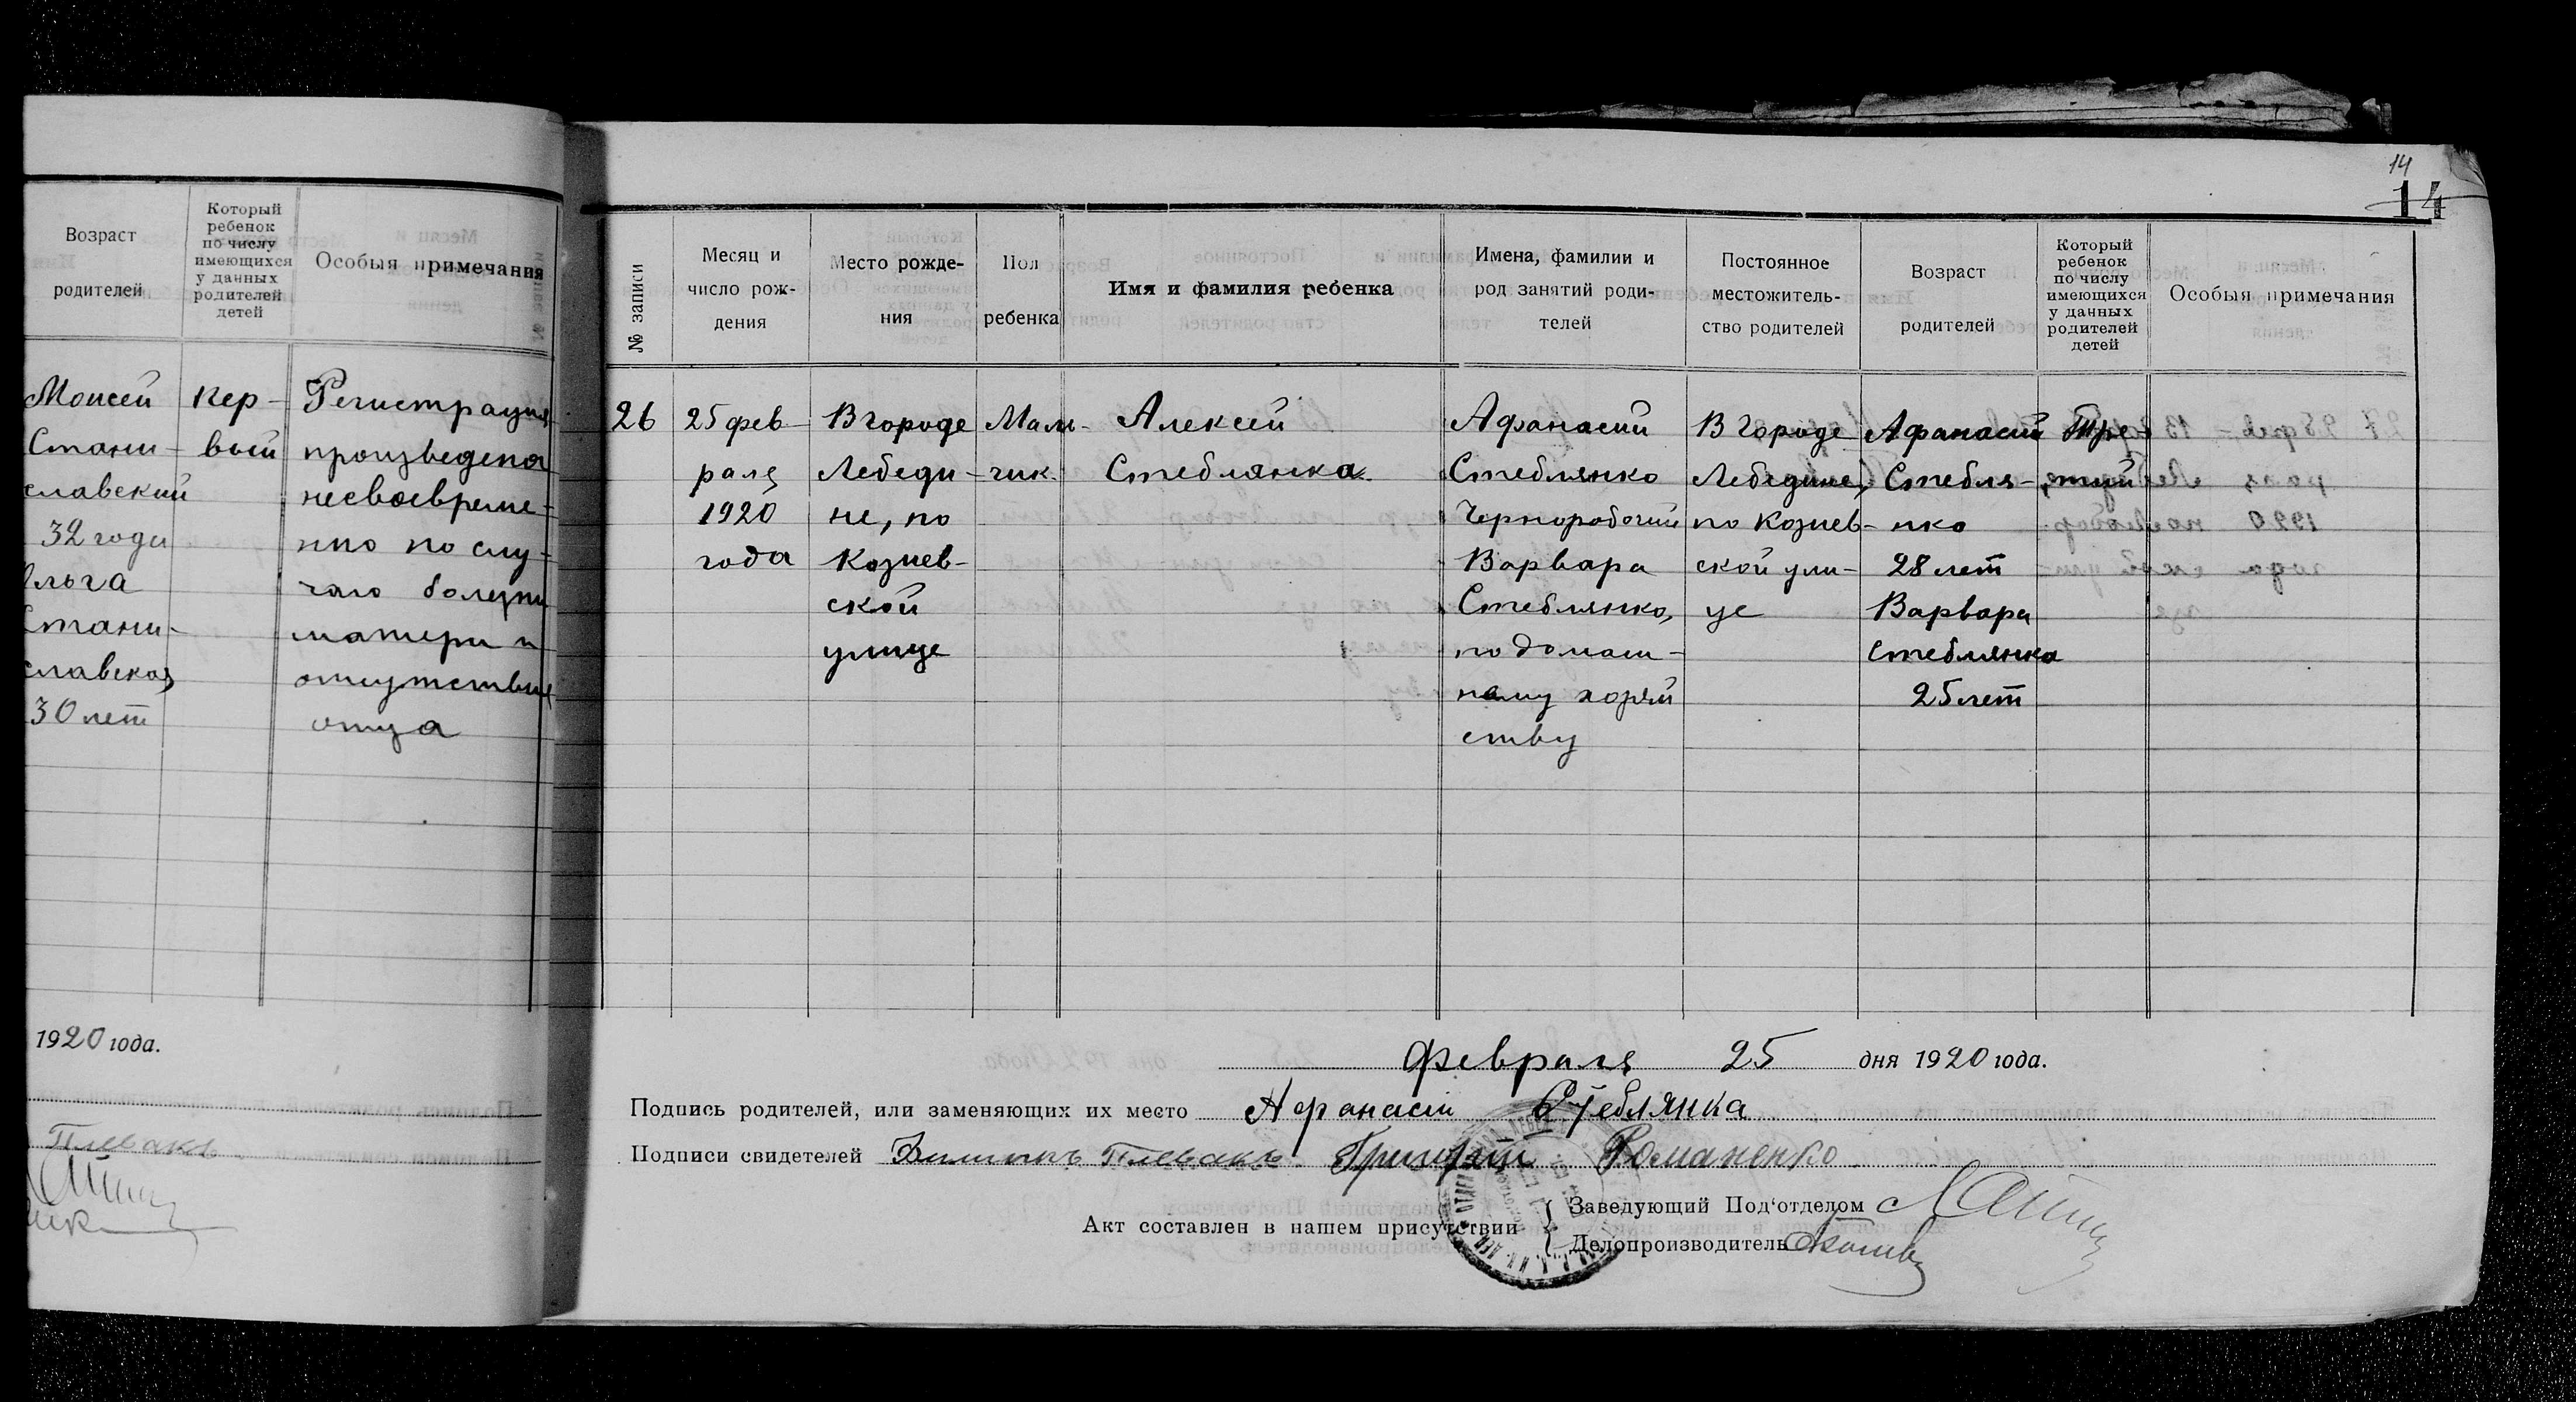 Возраст
родителей
Который
ребенок
по числу
имеющихся
у данных
родителей
детей
Особыя примечания
Моисей
Стани-
славский
32 года
Ольга
Стани-
славская
30 лет
Пер-
вый
Регистрация
произведена
несвоевреме-
нно по слу-
чаю болезни
матери и
отсутствия
отца
1920 года.
Плевакъ
14
14
№ записи
Месяц и
число рож-
дения
Место рожде-
ния
Пол
ребенка
Имя и фамилия ребенка
Имена, фамилии и
род занятий роди-
телей
Постоянное
местожитель-
ство родителей
Возраст
родителей
Который
ребенок
по числу
имеющихся
у данных
родителей
детей
Особыя примечания
26
25 фев-
раля
1920
года
В городе
Лебеди-
не, по
Козиев-
ской
улице
Маль-
чик.
Алексей
Стеблянка
Афанасий
Стеблянко
Чернорабочий
Варвара
Стеблянко,
по домаш-
нему хозяй
ству
В городе
Лебедине,
по Козиев-
ской ули-
це
Афанасий
Стебля-
нко
28 лет
Варвара
Стеблянка
25 лет
Тре-
тий
Февраля 25 дня 1920 года.
Подпись родителей, или заменяющих их место Афанасій Стеблянка
Подписи свидетелей Плевакъ Григорій Романенко
Акт составлен в нашем присутствии
Заведующий Под'отделом
Делопроизводитель